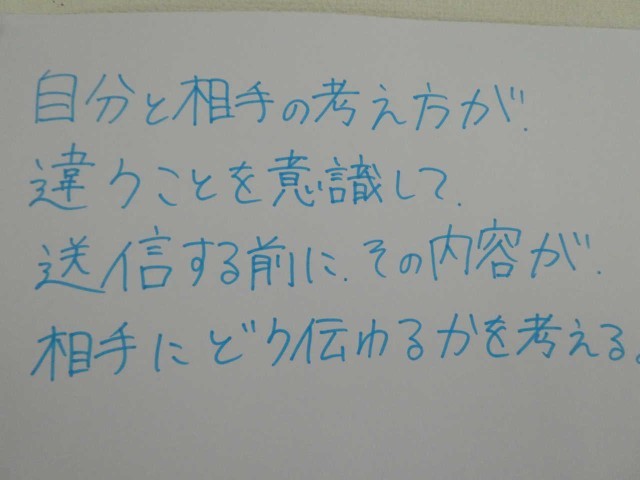 自分と相手の考え方が、
違うことを意識して、
送信する前に、その内容が、
相手にどう伝わるかを考える。